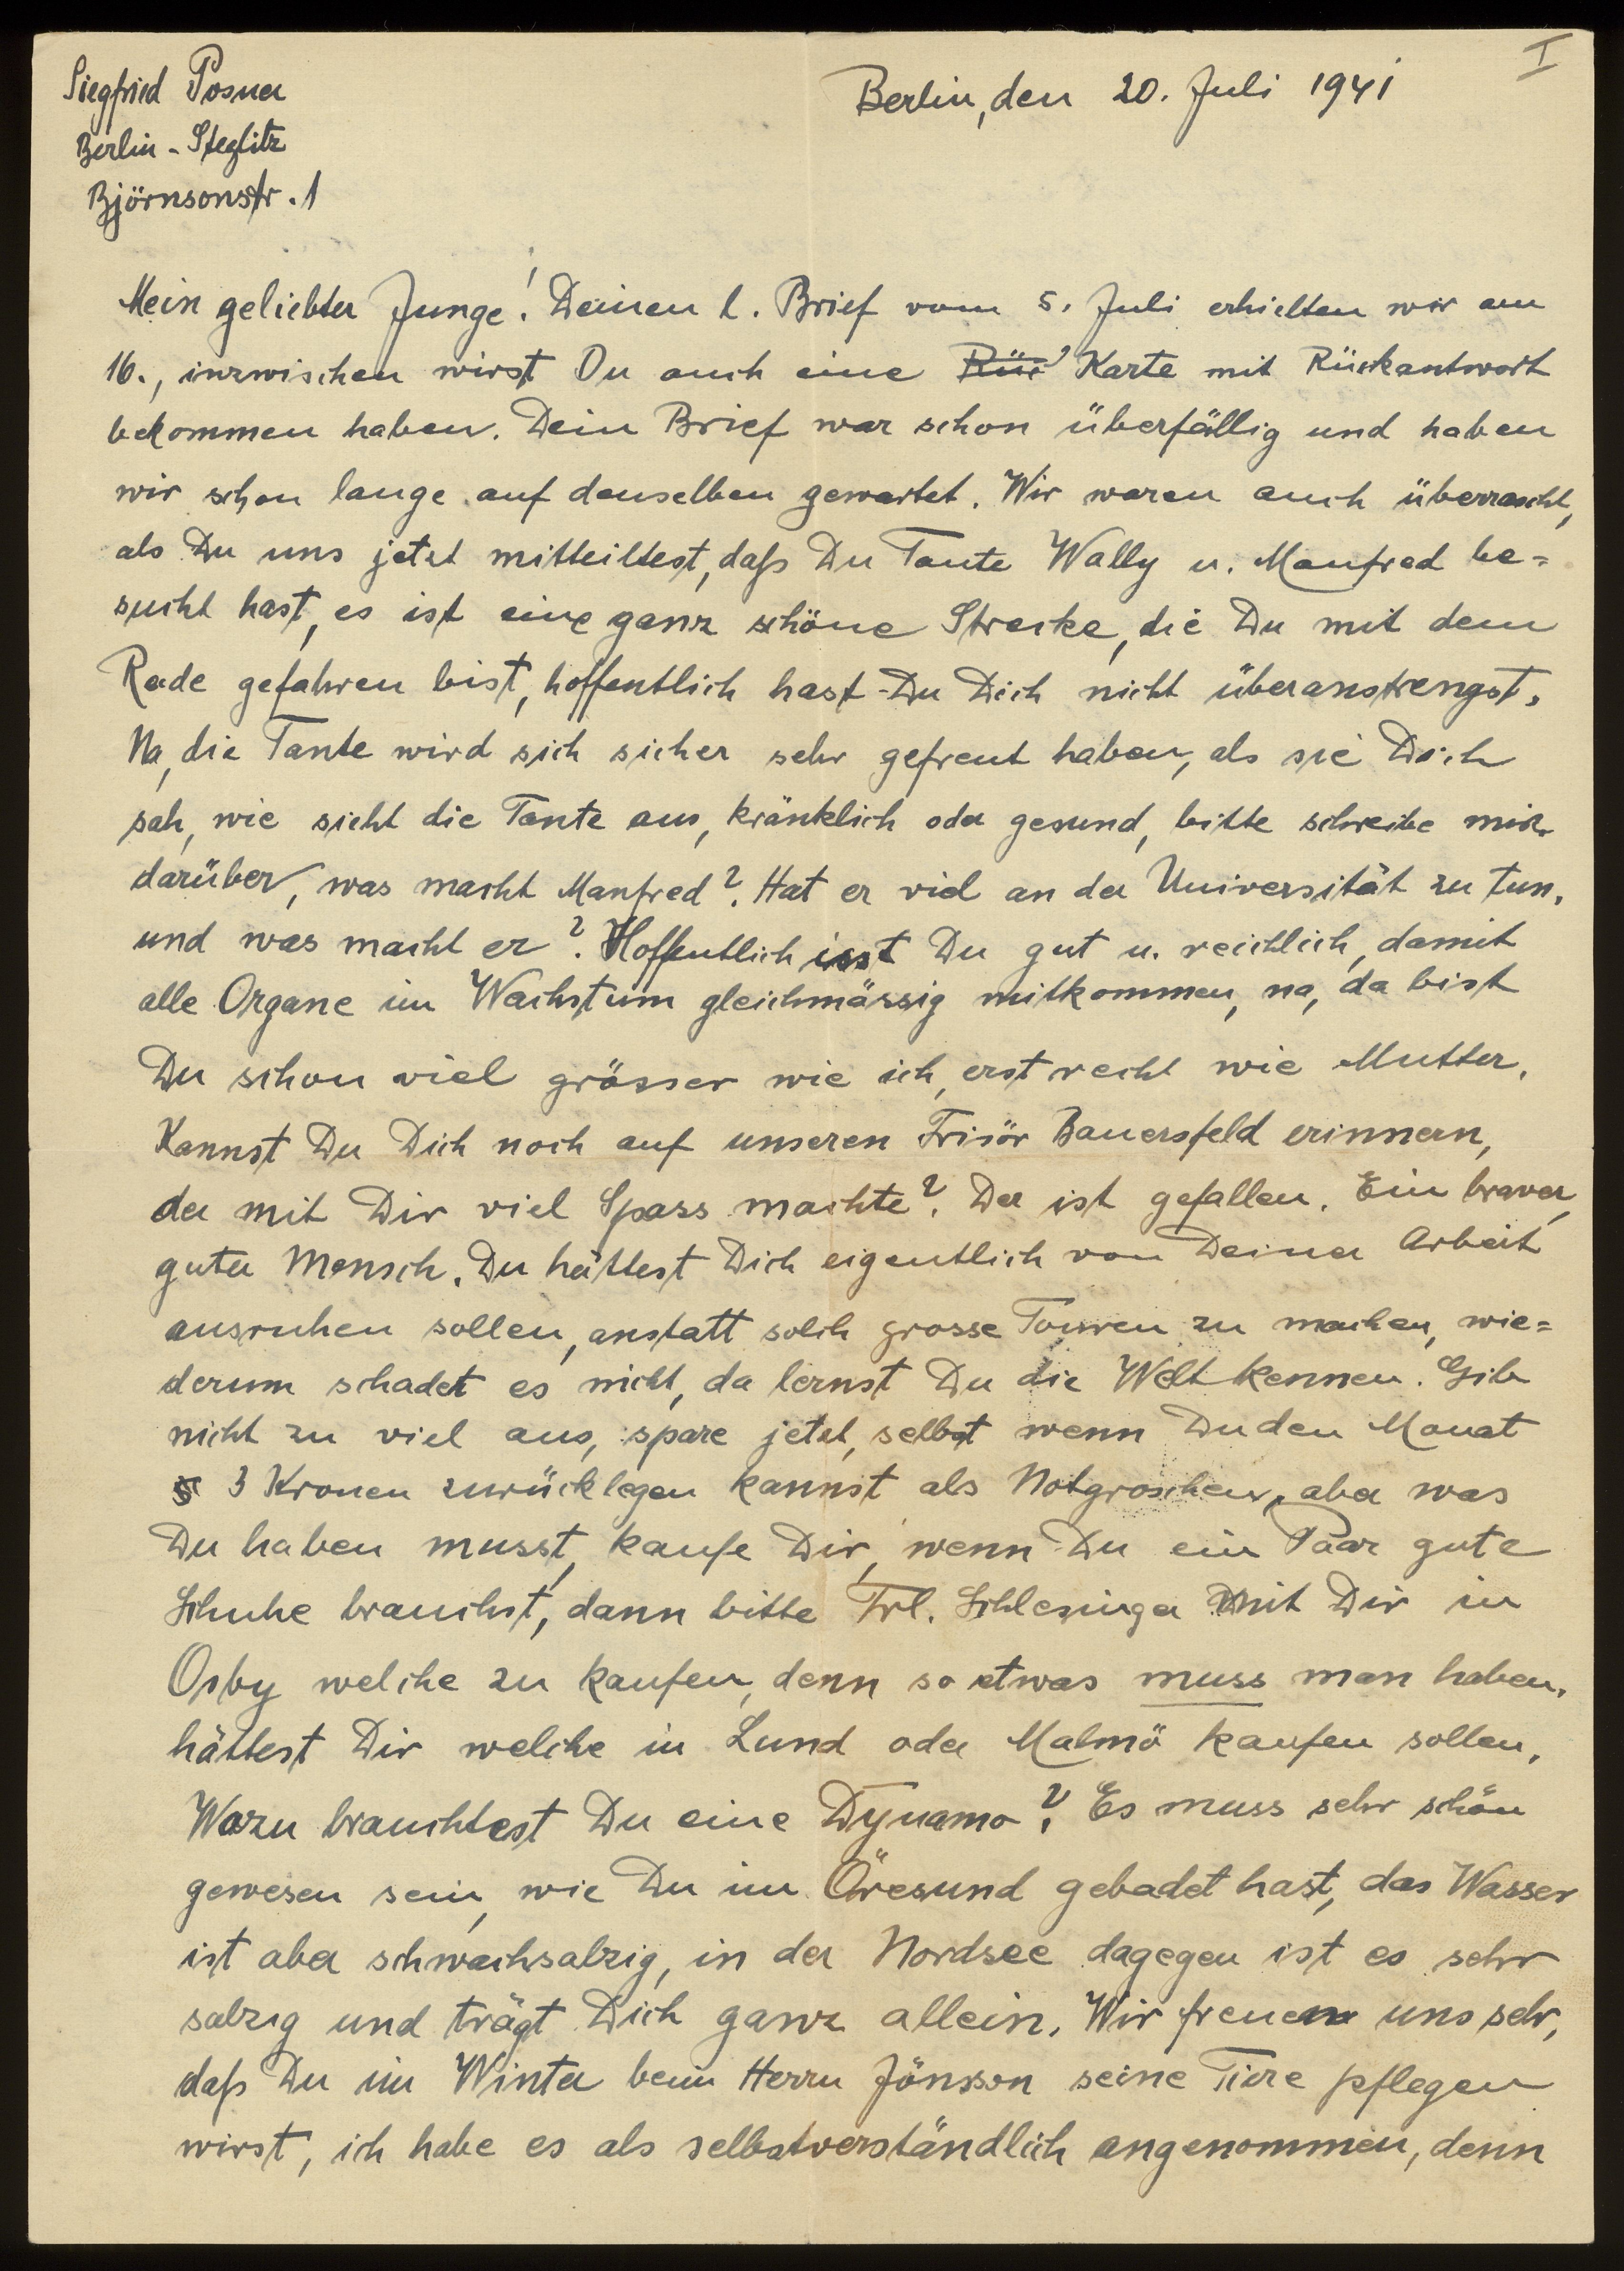 I
Siegfried Posner
Berlin, den 20. Juli 1941
Berlin - Steglitz
Björnsonstr. 1
Mein geliebter Junge! Deinen l. Brief vom 5. Juli erhielten wir am
16., inzwischen wirst Du auch eine Rür Karte mit Rückantwort
bekommen haben. Dein Brief war schon überfällig und haben
wir schon lange auf denselben gewartet. Wir waren auch überrascht,
als Du uns jetzt mitteiltest, daſs Du Tante Wally u. Manfred be=
sucht hast, es ist eine ganz schöne Strecke, die Du mit dem
Rade gefahren bist, hoffentlich hast Du Dich nicht überanstrengst.
Na, die Tante wird sich sicher sehr gefreut haben, als sie Dich
sah, wie sieht die Tante aus, kränklich oder gesund, bitte schreibe mir
darüber, was macht Manfred? Hat er viel an der Universität zu tun,
und was macht er? Hoffentlich isst Du gut u. reichlich, damit
alle Organe im Wachstum gleichmässig mitkommen, na, da bist
Du schon viel grösser wie ich, erst recht wie Mutter.
Kannst Du Dich noch auf unseren Frisör Bauersfeld erinnern,
der mit Dir viel Spass machte? Der ist gefallen. Ein braver,
guter Mensch. Du hättest Dich eigentlich von Deiner Arbeit
ausruhen sollen, anstatt solch grosse Touren zu machen, wie=
derum schadet es nicht, da lernst Du die Welt kennen. Gib
nicht zu viel aus, spare jetzt, selbst wenn Du den Monat
3 Kronen zurücklegen kannst als Notgroschen, aber was
Du haben musst, kaufe Dir, wenn Du ein Paar gute
Schuhe brauchst, dann bitte Frl. Schlesinger mit Dir in
Osby welche zu kaufen, denn so etwas muss man haben,
hättest Dir welche in Lund oder Malmö kaufen sollen.
Wozu brauchtest Du eine Dynamo? Es muss sehr schön
gewesen sein, wie Du im Öresund gebadet hast, das Wasser
ist aber schwachsalzig, in der Nordsee dagegen ist es sehr
salzig und trägt Dich ganz allein. Wir freuen uns sehr,
daſs Du im Winter beim Herrn Jönsson seine Tiere pflegen
wirst, ich habe es als selbstverständlich angenommen, denn